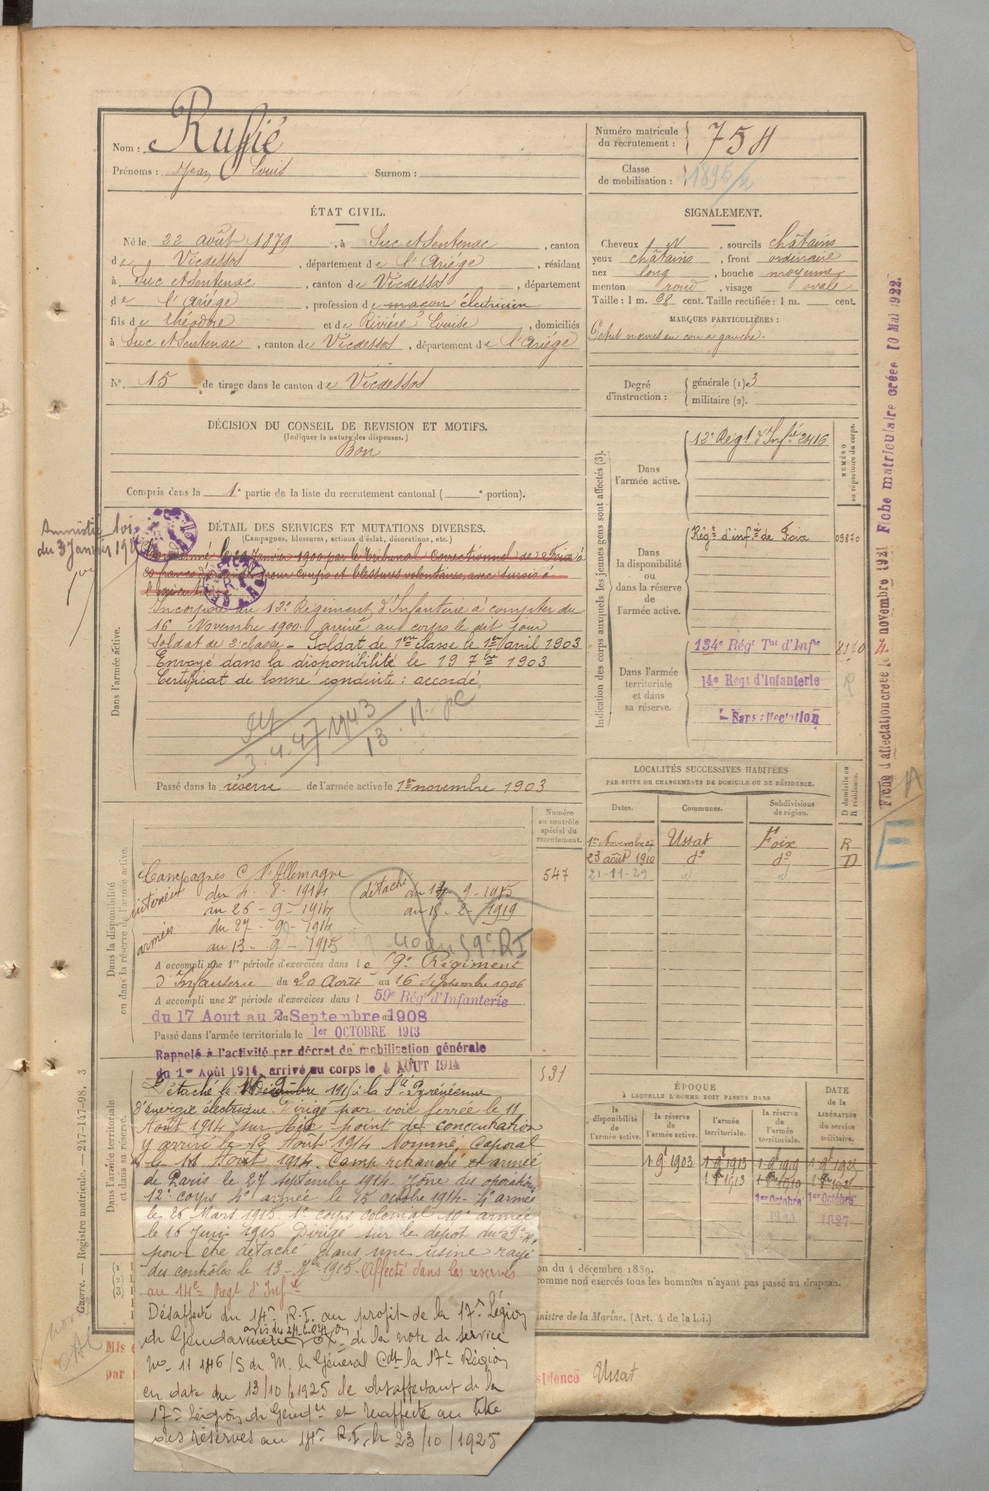 Nom : Ruffié
Prénoms : Jean Louis Surnom :
Numéro matricule du recrutement : 758
Classe de mobilisation : 1896/2
ÉTAT CIVIL.
Né le 22 août 1879, à Suc et Sentenac, canton
de Vicdessos, département de l'Ariége, résidant
à Suc et Sentenac, canton de Vicdessos, département
de l'Ariége, profession de maçon électricien
fils de Théodore et de Rivière Louise, domiciliés
à Suc et Sentenac, canton de Vicdessos, département de l'Ariége
N° 15 de tirage dans le canton de Vicdessos
SIGNALEMENT.
Cheveux, sourcils châtains
yeux châtains, front ordinaire
nez long, bouche moyenne
menton rond, visage ovale
Taille : 1 m. 68 cent. Taille rectifiée : 1 m. cent.
MARQUES PARTICULIÈRES :
au cou à gauche.
Degré d'instruction : générale (1) 3
militaire (2).
DÉCISION DU CONSEIL DE REVISION ET MOTIFS.
(Indiquer la nature des dispenses.)
Bon
Compris dans la 1e partie de la liste du recrutement cantonal ( e portion).
Amnistié loi
du 3 Janvier
DÉTAIL DES SERVICES ET MUTATIONS DIVERSES.
(Campagnes, blessures, actions d'éclat, décorations, etc.)
Dans l'armée active.
Condamné le 29 Janvier 1900 par le Tribunal Correctionnel de Foix à
francs d'amende pour coups et blessures volontaires, avec sursis à
l'exécution
Incorporé au 12e Régiment d'Infanterie à compter du
16 Novembre 1900. arrivé au corps le dit jour
Soldat de 2e classe. Soldat de 1re classe le 1er avril 1903
Envoyé dans la disponibilité le 19 7bre 1903
Certificat de bonne conduite : accordé
Passé dans la réserve de l'armée active le 1er novembre 1903
Indication des corps auxquels les jeunes gens sont affectés (3).
NUMÉRO au répertoire du corps.
Dans l'armée active.
12e Régt d'Infie 2416
Dans la disponibilité ou dans la réserve de l'armée active.
Régt d'infie de Foix
Dans l'armée territoriale et dans sa réserve.
134e Régt Tal d'Infie
14e Régt d'Infanterie
Sans affectation
Fiche matriculaire créée 10 Mai 1922.
Fiche d'affectation créée le novembre 1921
LOCALITÉS SUCCESSIVES HABITÉES
PAR SUITE DE CHANGEMENTS DE DOMICILE OU DE RÉSIDENCE.
Dates. Communes. Subdivisions de région. D domicile ou R résidence.
Ussat Foix R
23 août 1910 do do D
21-11-29
Numéro au contrôle spécial du recrutement.
547
Dans la disponibilité ou dans la réserve de l'armée active.
Campagnes C. l'Allemagne
intérieur du 4-8-1914
au 26-9-1914
armées du 27-9-1914
au 13-9-1915
détaché du 14-9-1915
au 18-2-1919
59e RI
A accompli une 1re période d'exercices dans le 59e Régiment
d'Infanterie du 20 Août au 16 Septembre 1906
A accompli une 2e période d'exercices dans l 59e Régt d'Infanterie
du 17 Aout au 2 Septembre 1908
Passé dans l'armée territoriale le 1er OCTOBRE 1913
Rappelé à l'activité par décret de mobilisation générale
du 1er Août 1914, arrivé au corps le 4 AOÛT 1914
531
Dans l'armée territoriale et dans sa réserve.
Détaché le décembre 1915 à la Sté Pyrénéenne
d'énergie électrique. Dirigé par voie ferrée le 11
Août 1914 sur point de concentration
y arrivé le 12 Août 1914. Nommé Caporal
le 14 Août 1914. Camp retranché et armée
de Paris le 27 septembre 1914. Zone des opérations
12e corps 4e armée le 15 octobre 1914. 4e armée
le 25 Mars 1915. 1er corps colonial 10e armée
le 16 Juin 1915. Dirigé sur le dépôt du 59e RI
pour être détaché dans une usine rayé
des contrôles le 13-7bre 1915. Affecté dans les réserves
au 14e Régt d'Infie
Désaffecté du 14e R.I. au profit de la 17e Légion
de Gendarmerie de la note de service
No 11 146/S du M. le Général Cdt la 17e Région
en date du 13/10/1925 le désaffectant de la
17e Légion de Gendie et réaffecté au titre
des réserves au 14e R.I. le 23/10/1925
ÉPOQUE
À LAQUELLE L'HOMME DOIT PASSER DANS
la disponibilité de l'armée active. la réserve de l'armée active. l'armée territoriale. la réserve de l'armée territoriale.
DATE de la LIBÉRATION du service militaire.
1903 1913 1919 1925
1er Octobre 1er Octobre
1927
on du 4 décembre 1889.
comme non exercés tous les hommes n'ayant pas passé au drapeau.
inistre de la Marine. (Art. 4 de la l.i.)
Guerre. — Registre matricule. — 247-147-98. 3
Mis
par
sidence Ussat